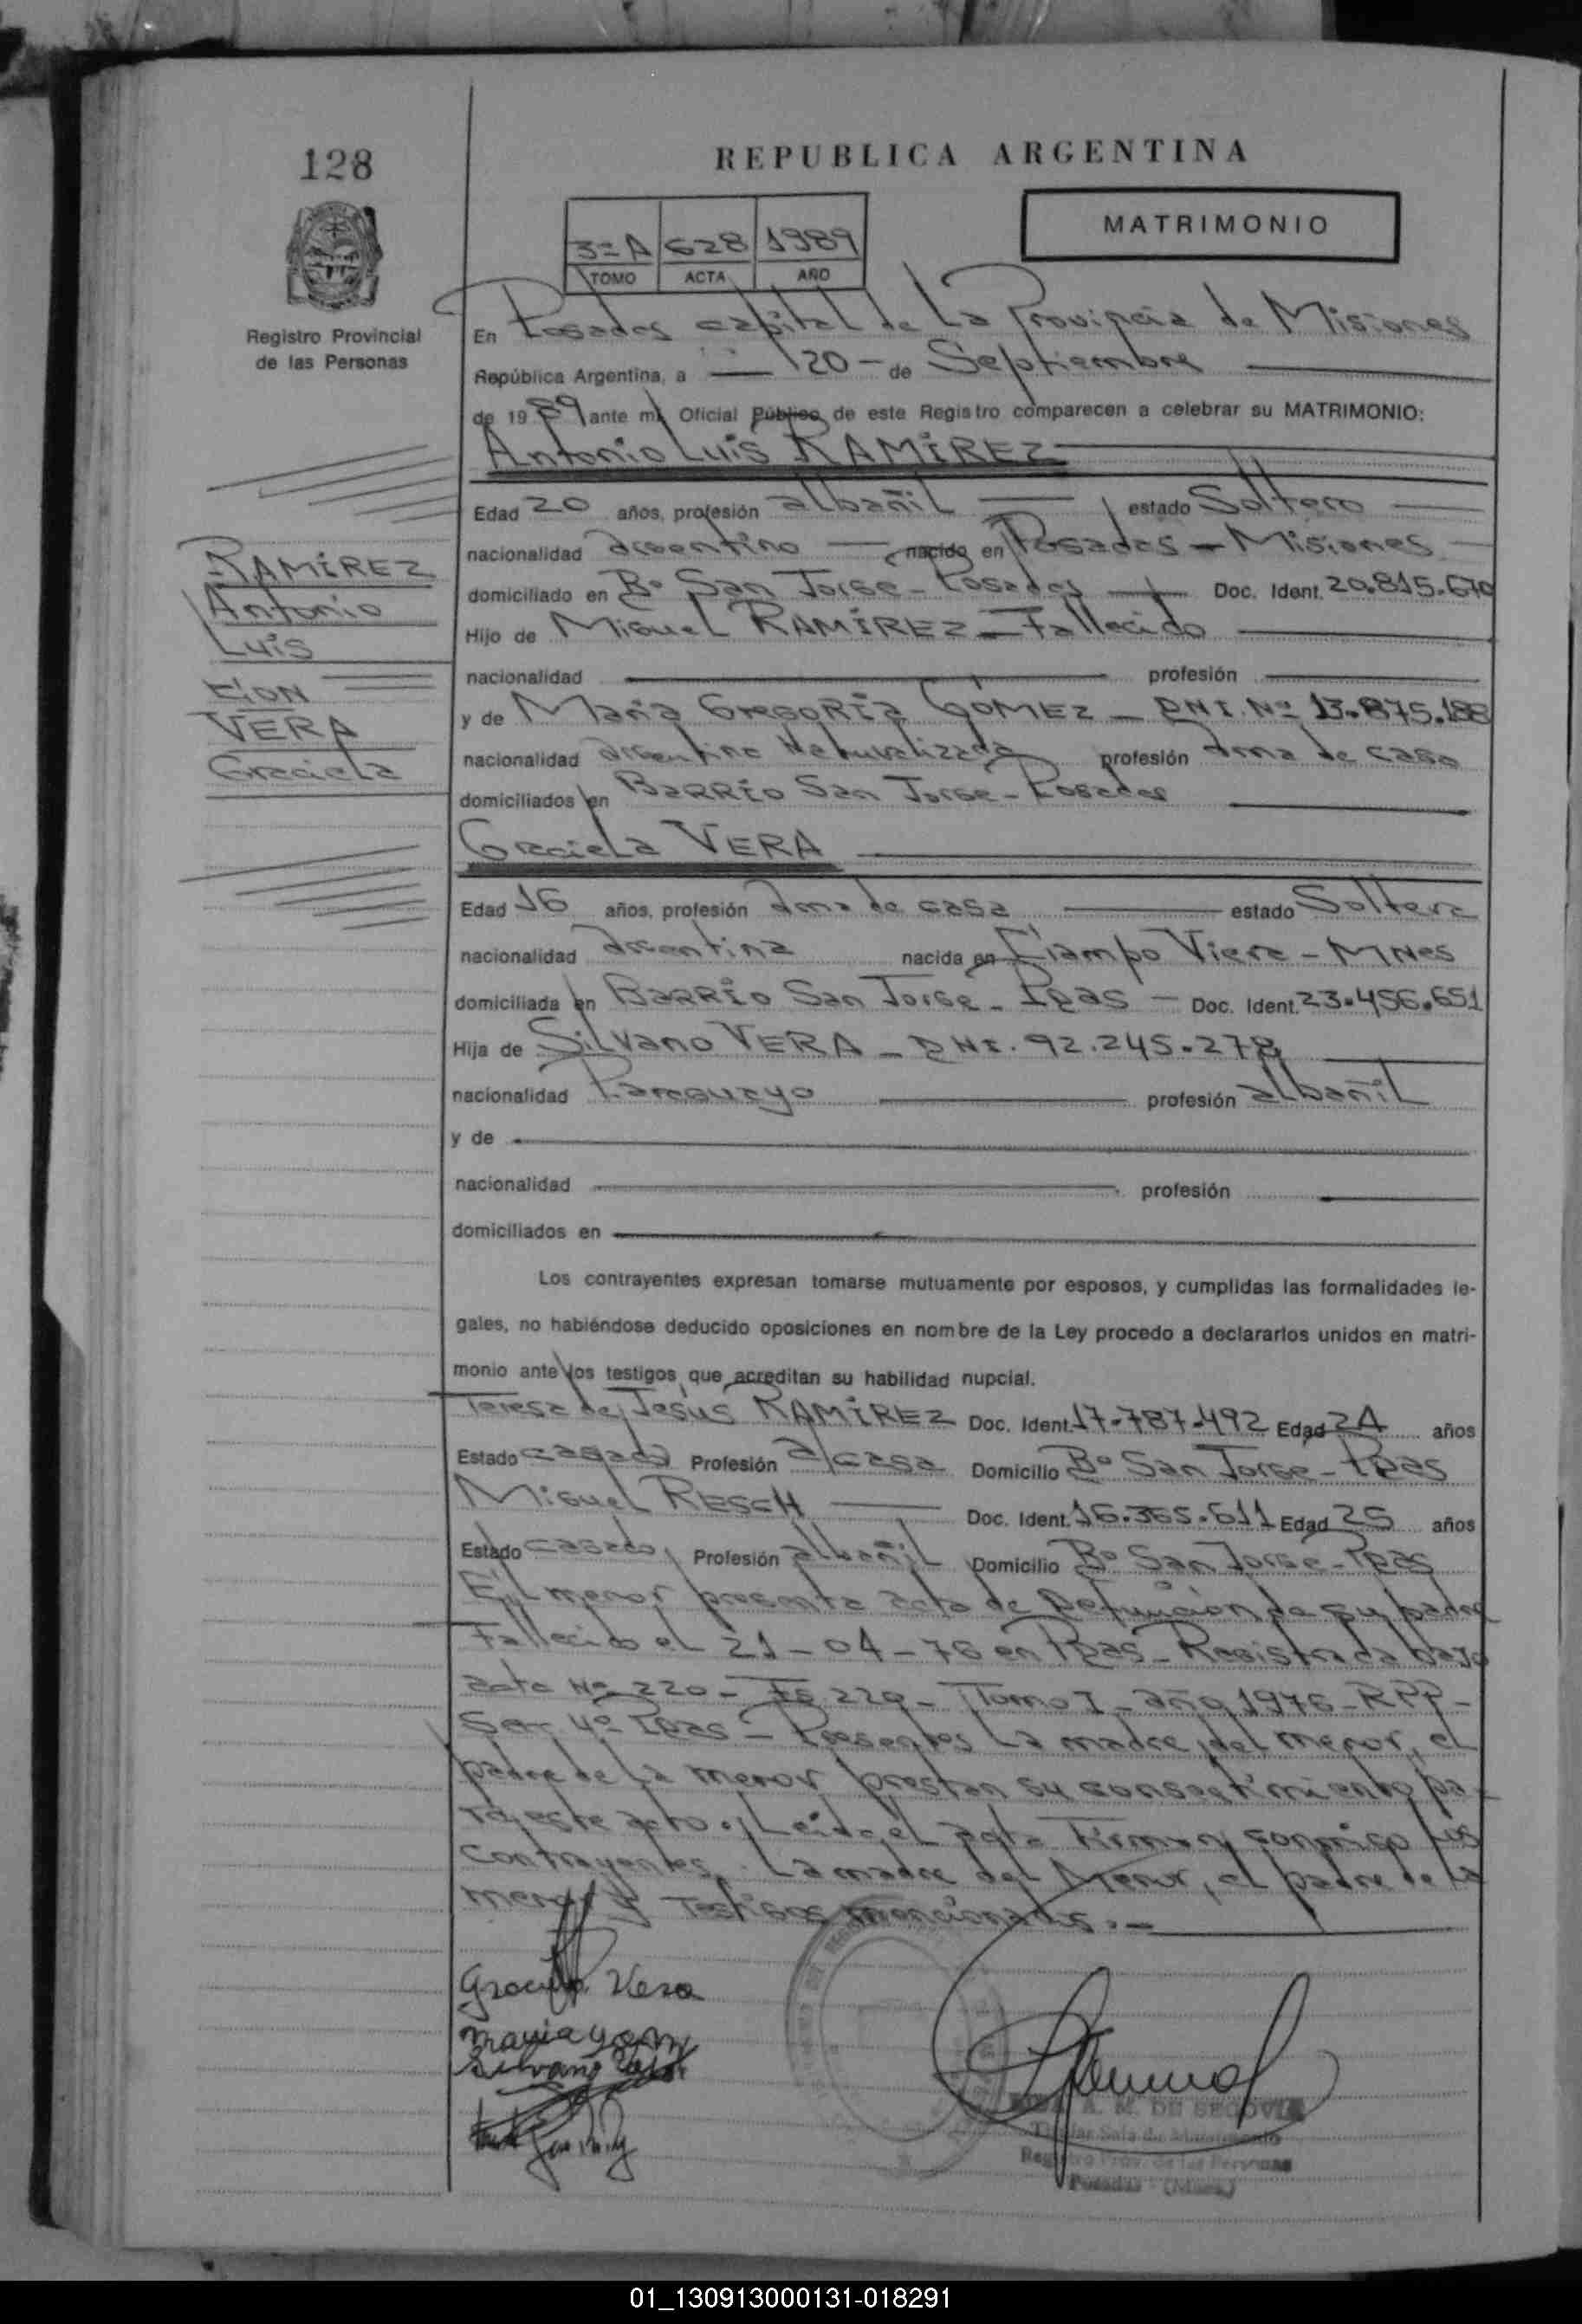 128
REPUBLICA ARGENTINA
MATRIMONIO
3=A 628 1989
TOMO ACTA AÑO
Registro Provincial
de las Personas
En Posadas capital de La Provincia de Misiones
República Argentina, a 20 - de Septiembre
de 1989 ante mí, Oficial Público de este Registro comparecen a celebrar su MATRIMONIO:
Antonio Luis RAMIREZ
Edad 20 años, profesión albañil estado Soltero
nacionalidad argentino nacido en Posadas - Misiones
domiciliado en Bº San Jorge - Posadas Doc. Ident. 20.815.670
Hijo de Miguel RAMIREZ - Fallecido
nacionalidad profesión
y de Maria Gregoria GOMEZ - DNI. Nº 13.875.188
nacionalidad argentina Naturalizada profesión ama de casa
domiciliados en Barrio San Jorge - Posadas
RAMIREZ
Antonio
Luis
CION
VERA
Graciela
Graciela VERA
Edad 16 años, profesión ama de casa estado Soltera
nacionalidad argentina nacida en Campo Viera - MNes
domiciliada en Barrio San Jorge - Pdas - Doc. Ident. 23.456.651
Hija de Silvano VERA - DNI. 92.245.278
nacionalidad Paraguayo profesión albañil
y de
nacionalidad profesión
domiciliados en
Los contrayentes expresan tomarse mutuamente por esposos, y cumplidas las formalidades le-
gales, no habiéndose deducido oposiciones en nombre de la Ley procedo a declararlos unidos en matri-
monio ante los testigos que acreditan su habilidad nupcial.
Teresa de Jesús RAMIREZ Doc. Ident. 17.787.492 Edad 24 años
Estado casada Profesión a/casa Domicilio Bº San Jorge - Pdas
Miguel RESCH Doc. Ident. 16.365.611 Edad 25 años
Estado casado Profesión albañil Domicilio Bº San Jorge - Pdas
El menor presenta acta de Defunción de su padre
Fallecido el 21-04-76 en Pdas - Registrada bajo
acta Nº 220 - Fº 220 - Tomo I - año 1976 - RPP -
Sec. 4º Pdas - Presentes La madre del menor, el
padre de La menor prestan su consentimiento pa-
ra este acto. Leida el acta Firman conmigo Los
Contrayentes. La madre del Menor, el padre de La
menor y Testigos mencionados. -
Graciela Vera
Maria
Silvano
A. M. DE SEGOVIA
Titular Sala de Matrimonio
Registro Prov. de las Personas
Posadas - (Mnes.)
01_130913000131-018291